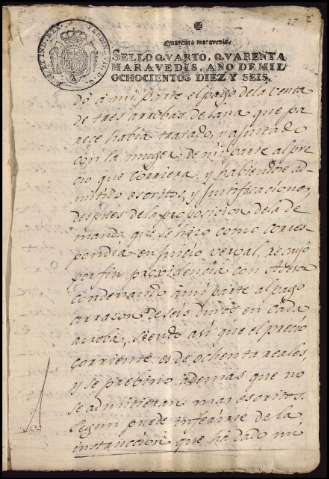 Quarenta maravedis.
SELLO QVARTO, QVARENTA
MARAVEDIS, AÑO DE MIL
OCHOCIENTOS DIEZ Y SEIS.
do á mi parte el pago de la venta
de tres arrobas de lana, que pa
rese habia tratado, y ajustado
con la muger de mi parte al pre
cio que corriera, y habiendose ad
mitido escritos, y justificaciones
despues de la proposicion de la de
manda que se hizo como corres
pondia en juicio verval, se
por fin providencia con
condenando á mi parte al pago
á razon de seis duros en cada
arroba, siendo asi que el precio
corriente es de ochenta reales,
y se previno ademas que no
se admitieran mas escritos,
segun puede inferirse de la
que ha dado mi